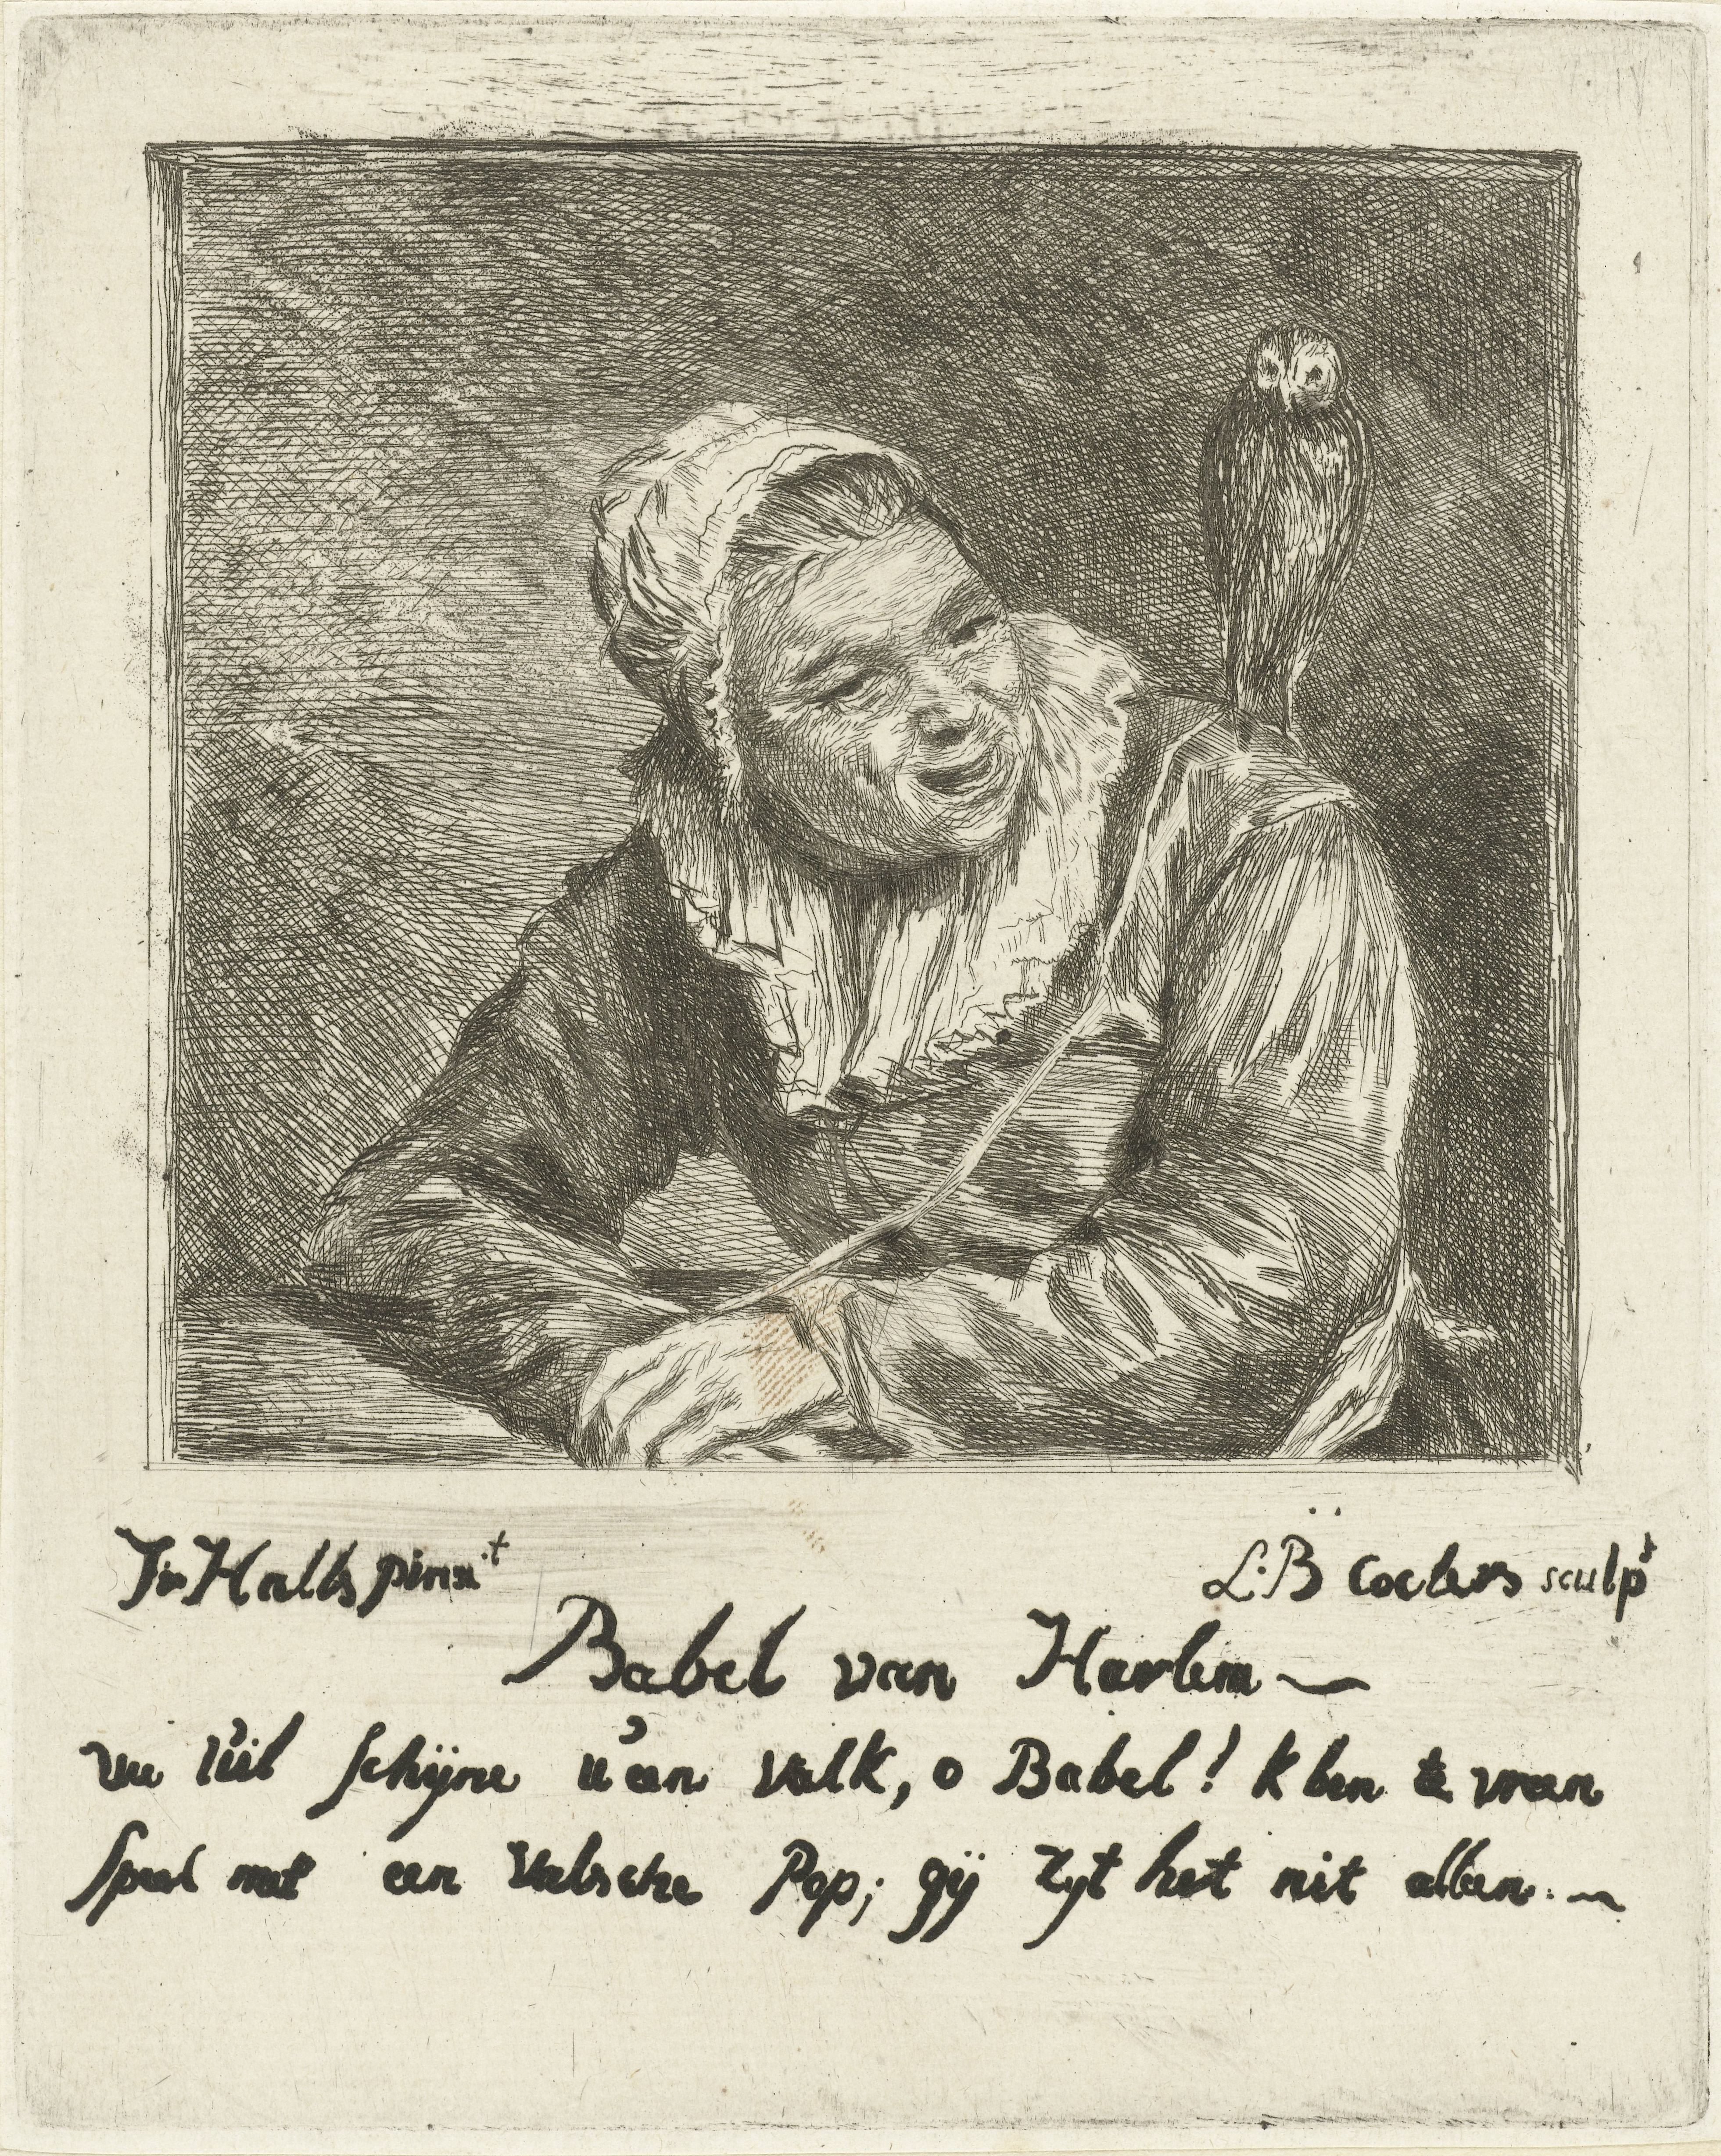 Fr Halls pinxt
L. B coclers sculpt
Babel van Harlem
vw üil schÿne u'an valk, o Babel! k ben te vrean
speel met een valsche Pop; gÿ zyt het nit alleen.